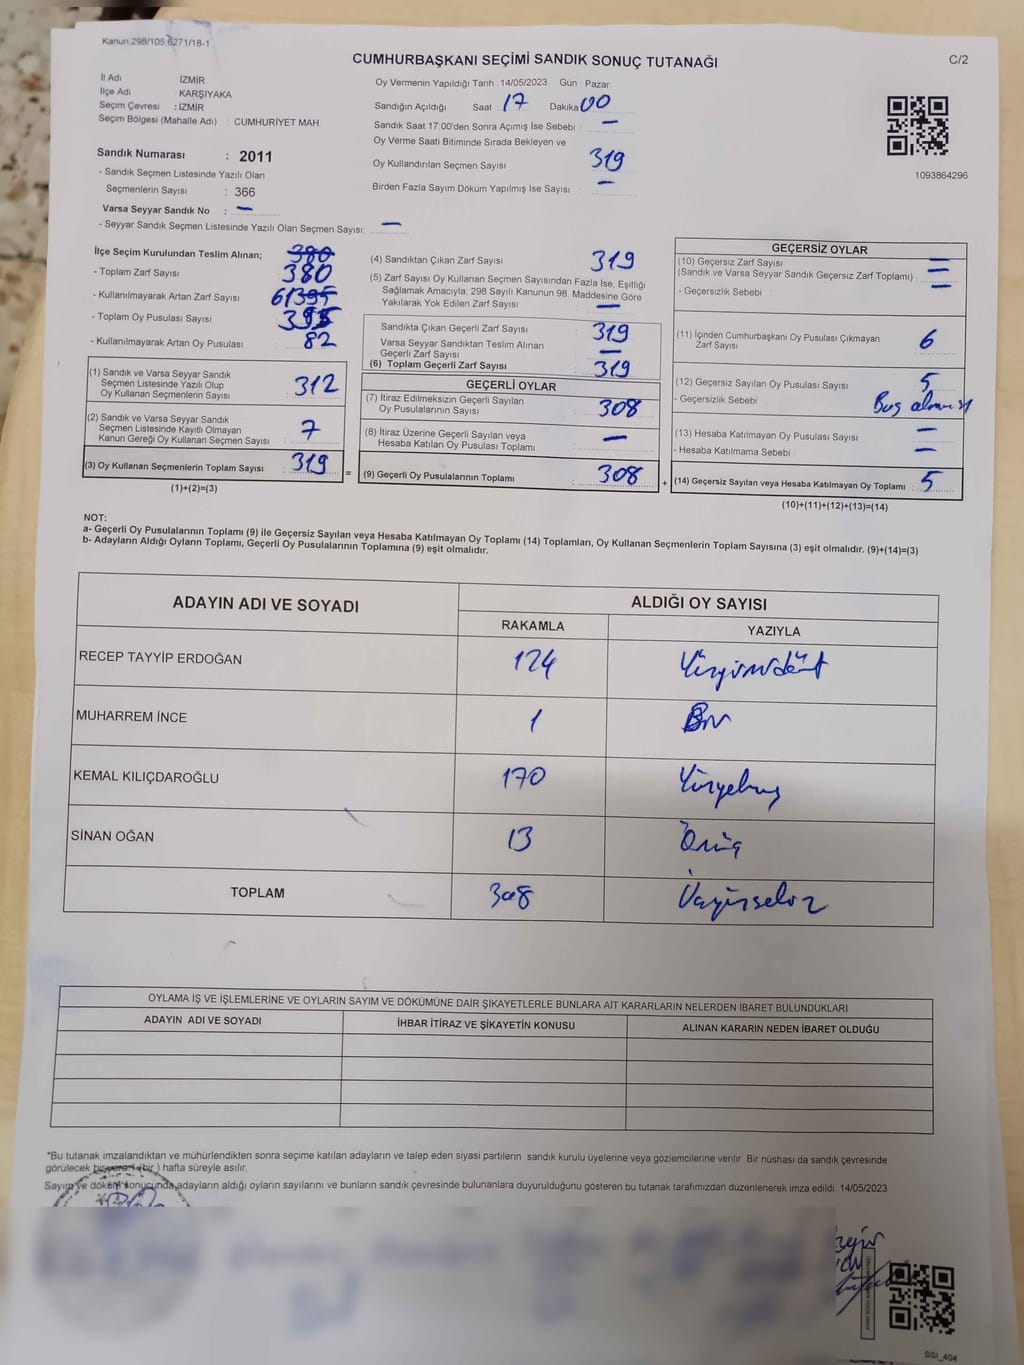 Kanun:298/105,6271/18-1
CUMHURBAŞKANI SEÇİMİ SANDIK SONUÇ TUTANAĞI
C/2
İl Adı : İZMİR
İlçe Adı : KARŞIYAKA
Seçim Çevresi : İZMİR
Seçim Bölgesi (Mahalle Adı) : CUMHURİYET MAH
Sandık Numarası : 2011
- Sandık Seçmen Listesinde Yazılı Olan
Seçmenlerin Sayısı : 366
Varsa Seyyar Sandık No : –
- Seyyar Sandık Seçmen Listesinde Yazılı Olan Seçmen Sayısı: –
Oy Vermenin Yapıldığı Tarih : 14/05/2023 Gün : Pazar
Sandığın Açıldığı Saat 17 Dakika 00
Sandık Saat 17.00'den Sonra Açımış İse Sebebi : –
Oy Verme Saati Bitiminde Sırada Bekleyen ve
Oy Kullandırılan Seçmen Sayısı 319
Birden Fazla Sayım Döküm Yapılmış İse Sayısı : –
1093864296
İlçe Seçim Kurulundan Teslim Alınan;
380
- Toplam Zarf Sayısı 380
- Kullanılmayarak Artan Zarf Sayısı 61
- Toplam Oy Pusulası Sayısı
- Kullanılmayarak Artan Oy Pusulası : 82
(1) Sandık ve Varsa Seyyar Sandık
Seçmen Listesinde Yazılı Olup
Oy Kullanan Seçmenlerin Sayısı : 312
(2) Sandık ve Varsa Seyyar Sandık
Seçmen Listesinde Kayıtlı Olmayan
Kanun Gereği Oy Kullanan Seçmen Sayısı : 7
(3) Oy Kullanan Seçmenlerin Toplam Sayısı : 319 =
(1)+(2)=(3)
(4) Sandıktan Çıkan Zarf Sayısı : 319
(5) Zarf Sayısı Oy Kullanan Seçmen Sayısından Fazla İse, Eşitliği
Sağlamak Amacıyla; 298 Sayılı Kanunun 98. Maddesine Göre
Yakılarak Yok Edilen Zarf Sayısı : –
Sandıkta Çıkan Geçerli Zarf Sayısı : 319
Varsa Seyyar Sandıktan Teslim Alınan
Geçerli Zarf Sayısı : –
(6) Toplam Geçerli Zarf Sayısı : 319
GEÇERLİ OYLAR
(7) İtiraz Edilmeksizin Geçerli Sayılan
Oy Pusulalarının Sayısı : 308
(8) İtiraz Üzerine Geçerli Sayılan veya
Hesaba Katılan Oy Pusulası Toplamı : –
(9) Geçerli Oy Pusulalarının Toplamı : 308 +
GEÇERSİZ OYLAR
(10) Geçersiz Zarf Sayısı –
(Sandık ve Varsa Seyyar Sandık Geçersiz Zarf Toplamı) : –
- Geçersizlik Sebebi : –
(11) İçinden Cumhurbaşkanı Oy Pusulası Çıkmayan
Zarf Sayısı : 6
(12) Geçersiz Sayılan Oy Pusulası Sayısı : 5
- Geçersizlik Sebebi : Boş
(13) Hesaba Katılmayan Oy Pusulası Sayısı : –
- Hesaba Katılmama Sebebi : –
(14) Geçersiz Sayılan veya Hesaba Katılmayan Oy Toplamı : 5
(10)+(11)+(12)+(13)=(14)
NOT:
a- Geçerli Oy Pusulalarının Toplamı (9) ile Geçersiz Sayılan veya Hesaba Katılmayan Oy Toplamı (14) Toplamları, Oy Kullanan Seçmenlerin Toplam Sayısına (3) eşit olmalıdır. (9)+(14)=(3)
b- Adayların Aldığı Oyların Toplamı, Geçerli Oy Pusulalarının Toplamına (9) eşit olmalıdır.
ADAYIN ADI VE SOYADI
ALDIĞI OY SAYISI
RAKAMLA YAZIYLA
RECEP TAYYİP ERDOĞAN 124 Yüzyirmidört
MUHARREM İNCE 1 Bir
KEMAL KILIÇDAROĞLU 170 Yüzyetmiş
SİNAN OĞAN 13 Onüç
TOPLAM 308 Üçyüzsekiz
OYLAMA İŞ VE İŞLEMLERİNE VE OYLARIN SAYIM VE DÖKÜMÜNE DAİR ŞİKAYETLERLE BUNLARA AİT KARARLARIN NELERDEN İBARET BULUNDUKLARI
ADAYIN ADI VE SOYADI İHBAR İTİRAZ VE ŞİKAYETİN KONUSU ALINAN KARARIN NEDEN İBARET OLDUĞU
*Bu tutanak imzalandıktan ve mühürlendikten sonra seçime katılan adayların ve talep eden siyasi partilerin sandık kurulu üyelerine veya gözlemcilerine verilir. Bir nüshası da sandık çevresinde
görülecek bir yere 1 (bir ) hafta süreyle asılır.
Sayım ve döküm sonucunda adayların aldığı oyların sayılarını ve bunların sandık çevresinde bulunanlara duyurulduğunu gösteren bu tutanak tarafımızdan düzenlenerek imza edildi. 14/05/2023
SSI_404